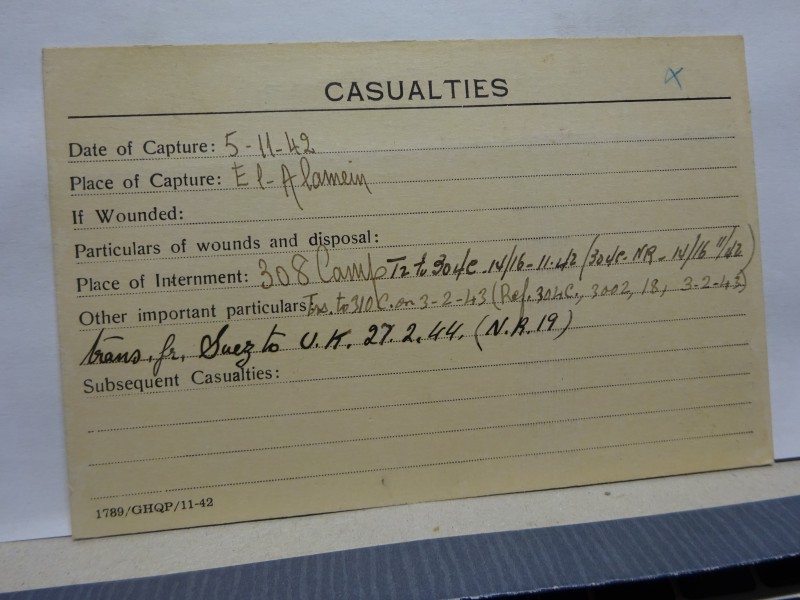 CASUALTIES
x
Date of Capture: 5-11-42
Place of Capture: El-Alamein
If Wounded:
Particulars of wounds and disposal:
Place of Internment: 308 Camp Tr to 304C. 14/16-11-42 (304C. NR-14/16 11/42)
Other important particulars Trs. to 310 C. on 3-2-43 (Ref. 304C., 3002, 18, 3-2-43)
trans. fr. Suez to U.K. 27.2.44. (N.R.19)
Subsequent Casualties:
1789/GHQP/11-42